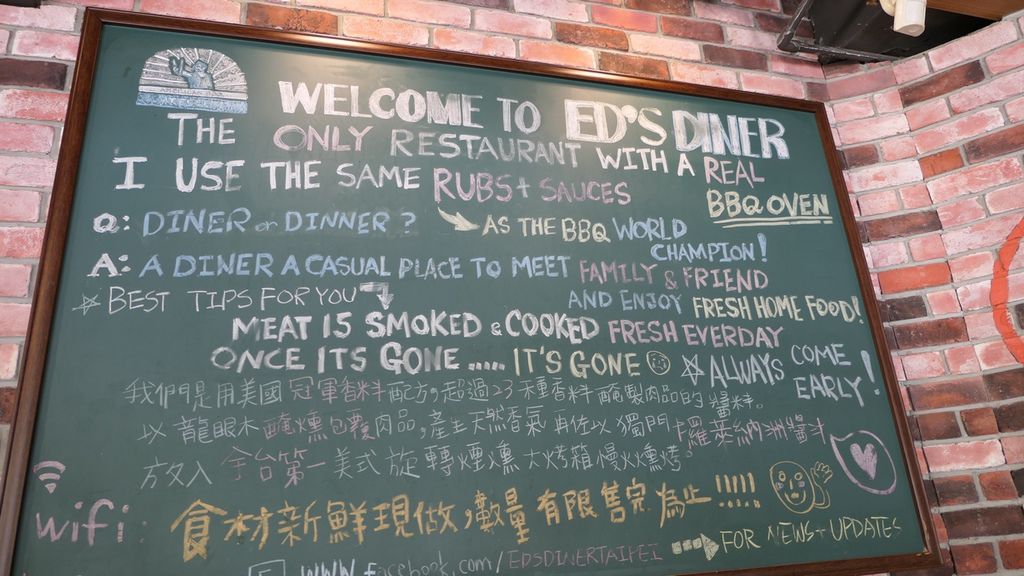 WELCOME TO ED'S DINER
THE ONLY RESTAURANT WITH A REAL
BBQ OVEN
I USE THE SAME RUBS + SAUCES
AS THE BBQ WORLD
CHAMPION!
Q: DINER or DINNER?
A: A DINER A CASUAL PLACE TO MEET FAMILY & FRIEND
AND ENJOY FRESH HOME FOOD!
BEST TIPS FOR YOU
MEAT IS SMOKED & COOKED FRESH EVERDAY
ONCE ITS GONE ..... IT'S GONE
ALWAYS COME
EARLY!
我們是用美國冠軍香料配方,超過23種香料醃製肉品的醬料。
以龍眼木醃燻包覆肉品,產生天然香氣再佐以獨門卡羅萊納洲醬汁
放入全台第一美式旋轉煙燻大烤箱慢火燻烤。
wifi:
食材新鮮現做,數量有限售完為止!!!!!
FOR NEWS + UPDATES
www.facebook.com/EDSDINERTAIPEI